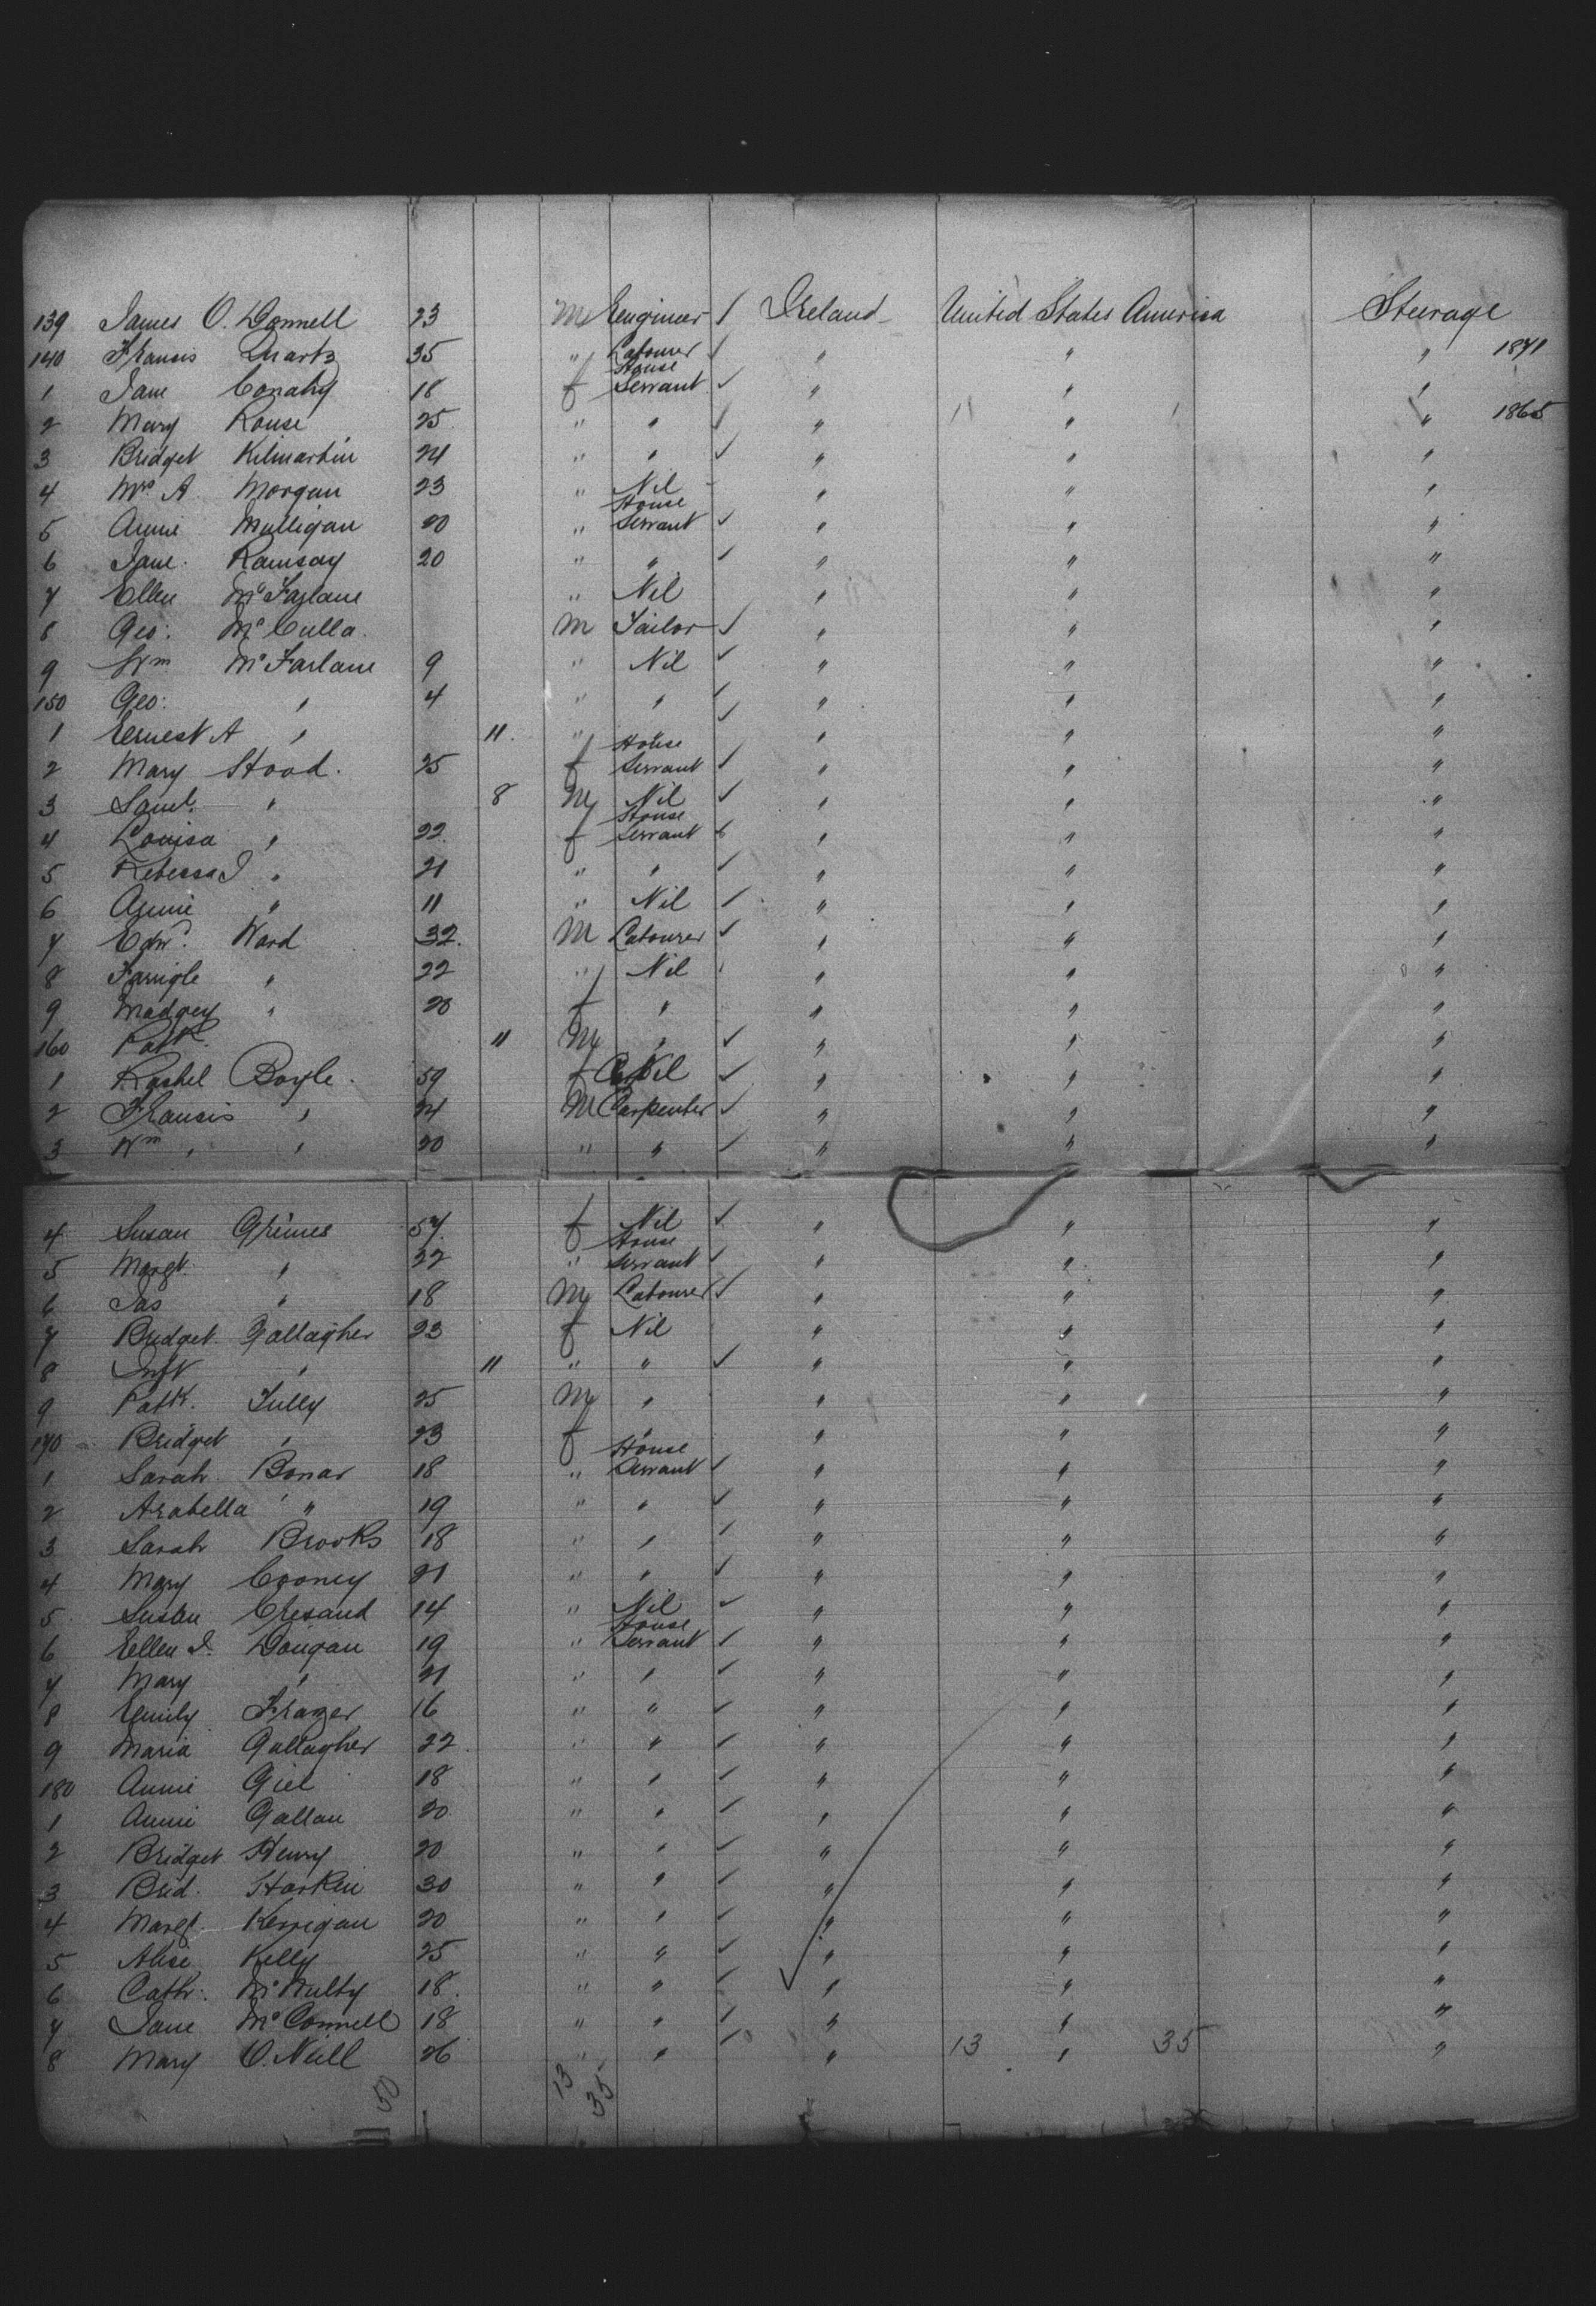 139 James O. Donnell 23 M Engineer ✓ Ireland United States America Steerage
140 Francis Quartz 35 " Labourer ✓ " " " 1871
1 Jane Conahy 18 f House Servant ✓ " " "
2 Mary Rouse 25 " " ✓ " " " 1865
3 Bridget Kilmartin 24 " " ✓ " " "
4 Mrs A. Morgan 23 " Nil - " " "
5 Annie Mulligan 20 " House Servant ✓ " " "
6 Jane Ramsay 20 " " ✓ " " "
7 Ellen McFarlane " Nil " " "
8 Geo: McCulla M Tailor ✓ " " "
9 Wm McFarlane 9 " Nil ✓ " " "
150 Geo: " 4 " " ✓ " " "
1 Ernest A " 11 " " ✓ " " "
2 Mary Hood 25 f House Servant ✓ " " "
3 Saml. " 8 M Nil ✓ " " "
4 Louisa " 22 f House Servant " " "
5 Rebecca J " 21 " " ✓ " " "
6 Annie " 11 " Nil ✓ " " "
7 Edwd. Ward 32 M Labourer ✓ " " "
8 " 22 " Nil " " "
9 Madgey " 20 f " " " "
160 Patk. 11 M " ✓ " " "
1 Rachel Boyle 59 f Nil ✓ " " "
2 Francis " 24 M Carpenter ✓ " " "
3 Wm " 20 " " ✓ " " "
4 Susan Grimes 57 f Nil ✓ " " "
5 Margt. " 22 " House Servant ✓ " " "
6 Jas " 18 M Labourer ✓ " " "
7 Bridget Gallagher 23 f Nil " " "
8 Inft " 11 " " ✓ " " "
9 Patk. Tully 25 M " " " "
170 Bridget " 23 f " " " "
1 Sarah Bonar 18 " House Servant ✓ " " "
2 Arabella " 19 " " ✓ " " "
3 Sarah Brooks 18 " " ✓ " " "
4 Mary Cooney 21 " " ✓ " " "
5 Susan 14 " Nil ✓ " " "
6 Ellen J. Dougan 19 " House Servant ✓ " " "
7 Mary " 21 " " ✓ " " "
8 Emily Frazer 16 " " ✓ " " "
9 Maria Gallagher 22 " " ✓ " " "
180 Annie Giel 18 " " ✓ " " "
1 Annie Gallan 20 " " ✓ " " "
2 Bridget Henry 20 " " ✓ " " "
3 Brid. Harkin 30 " " ✓ " " "
4 Margt. Kerrigan 20 " " ✓ " " "
5 Alice Kelly 25 " " ✓ " " "
6 Cath: McNulty 18 " " ✓ " " "
7 Jane McConnell 18 " " ✓ " " "
8 Mary O. Neill 26 " " ✓ " 13 " 35 "
50 13 35